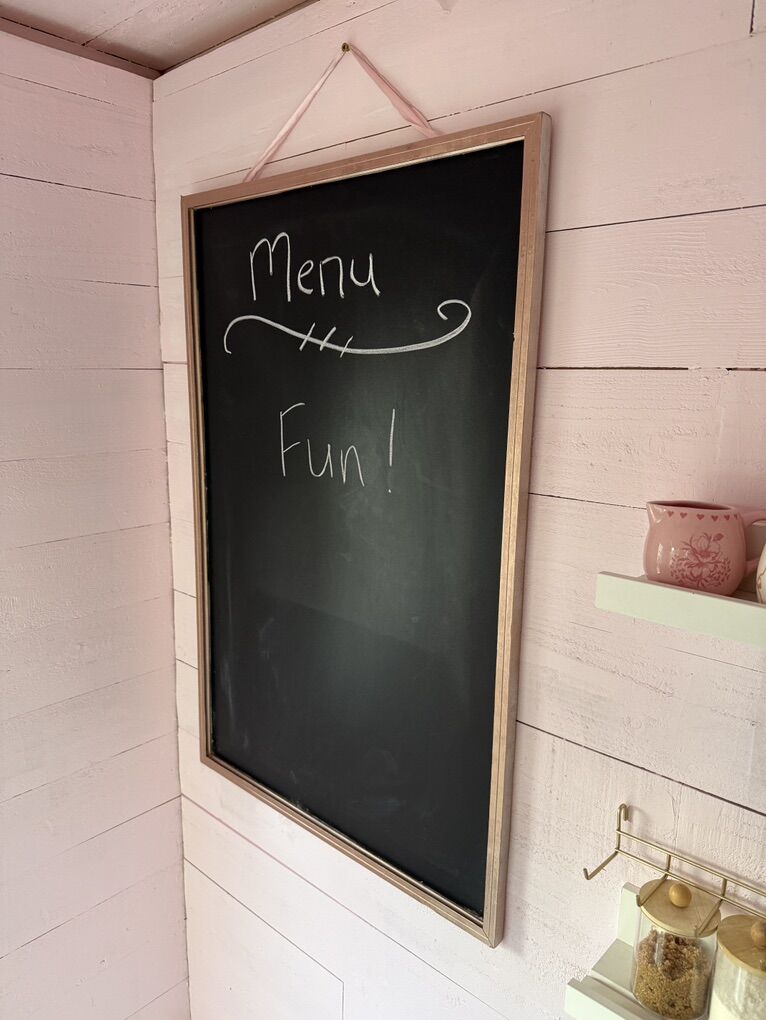 Menu
Fun!